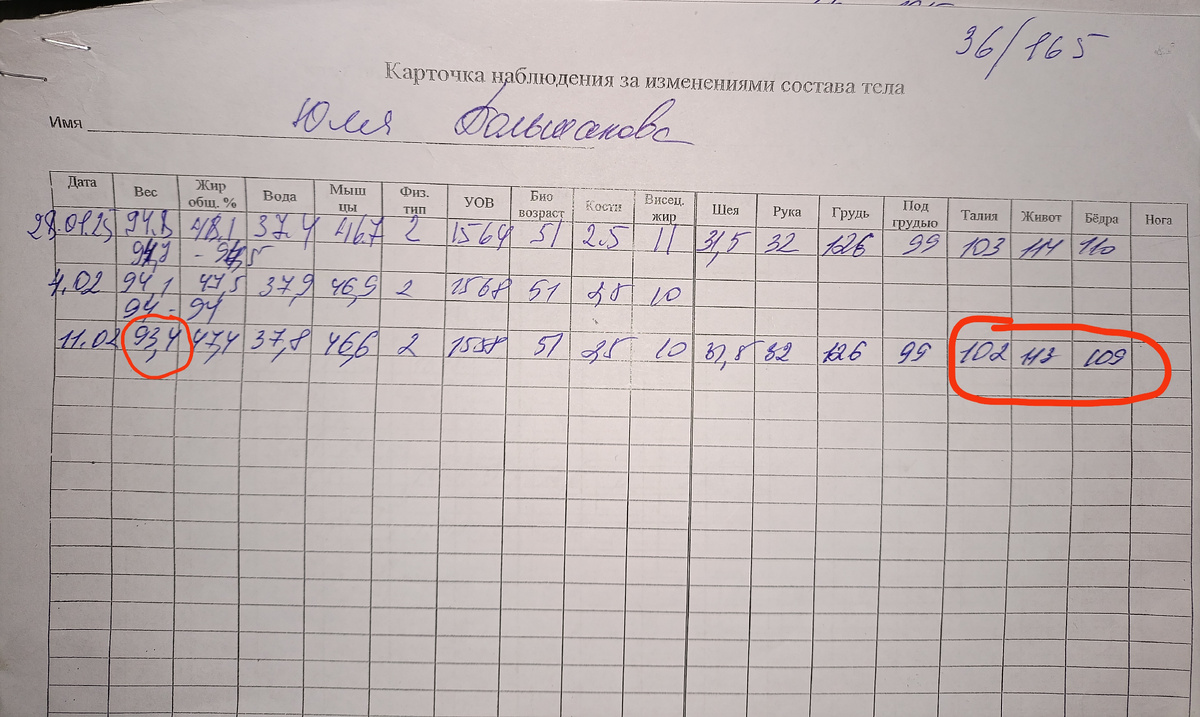 36/165
Карточка наблюдения за изменениями состава тела
Имя Юля Большакова
Дата Вес Жир общ. % Вода Мыш цы Физ. тип УОВ Био возраст Кости Висец. жир Шея Рука Грудь Под грудью Талия Живот Бёдра Нога
28.01.25 94.8 48,1 37.4 46.7 2 1564 51 2.5 11 31,5 32 126 99 103 114 110
4.02 94,1 47,5 37,9 46,9 2 1568 51 2,5 10
94 - 94
11.02 93,4 47,4 37,8 46,6 2 1558 51 2,5 10 31,5 32 126 99 102 113 109